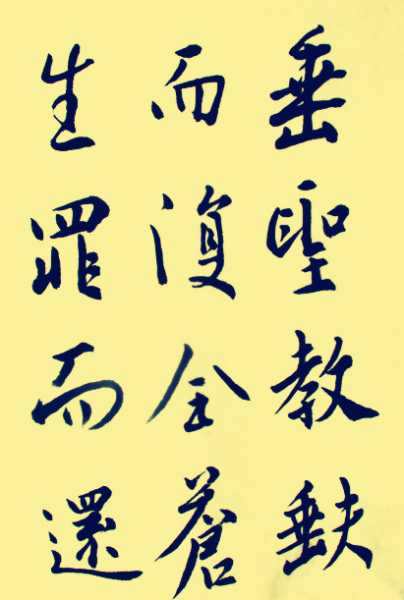 垂聖教缺
而復全蒼
生罪而還